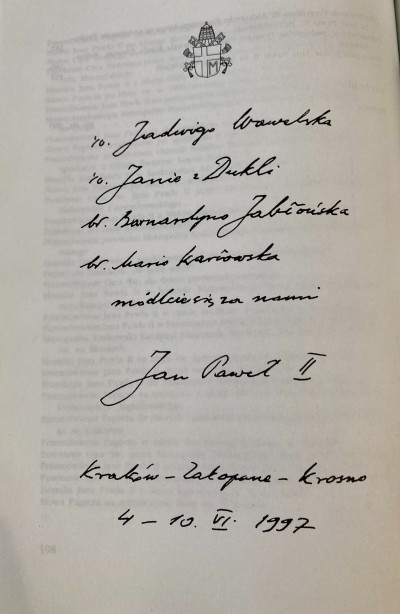 św. Jadwigo Wawelska
św. Janie z Dukli
bł. Bernardyno Jabłońska
bł. Mario Karłowska
módlcie się za nami
Jan Paweł II
Kraków – Zakopane – Krosno
4 – 10. VI. 1997
198